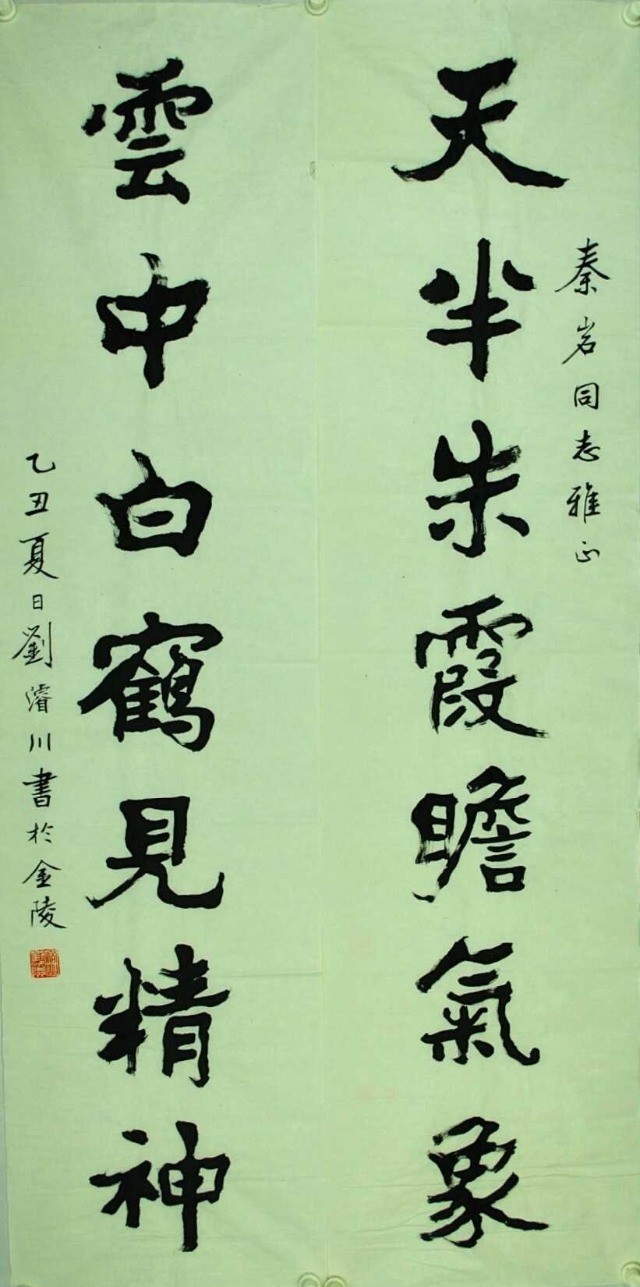 天半朱霞瞻氣象
秦岩同志雅正
雲中白鶴見精神
乙丑夏日劉濬川書於金陵